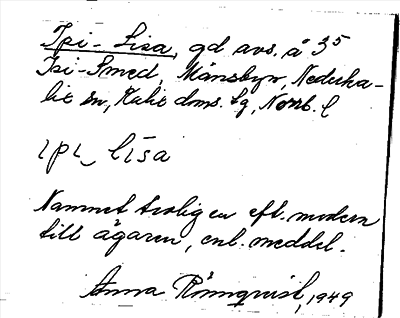 Ipi-Lisa, gd avs. å 35
Isi-Smed, Månsbyn, Nederka-
lix sn, Kalix dms. lg, Norrb. l
ɩpɩ lisa
Namnet troligen eft. modern
till ägaren, enl. meddel.
Anna Rönnqvist, 1949